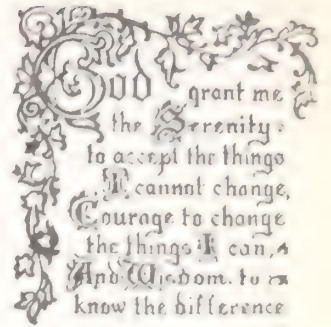 God grant me
the Serenity
to accept the things
I cannot change,
Courage to change
the things I can,
And Wisdom. to
know the difference